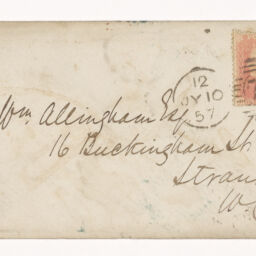 12
JY 10
57
Wm Allingham Esq
16 Buckingham St
Stran
W.C